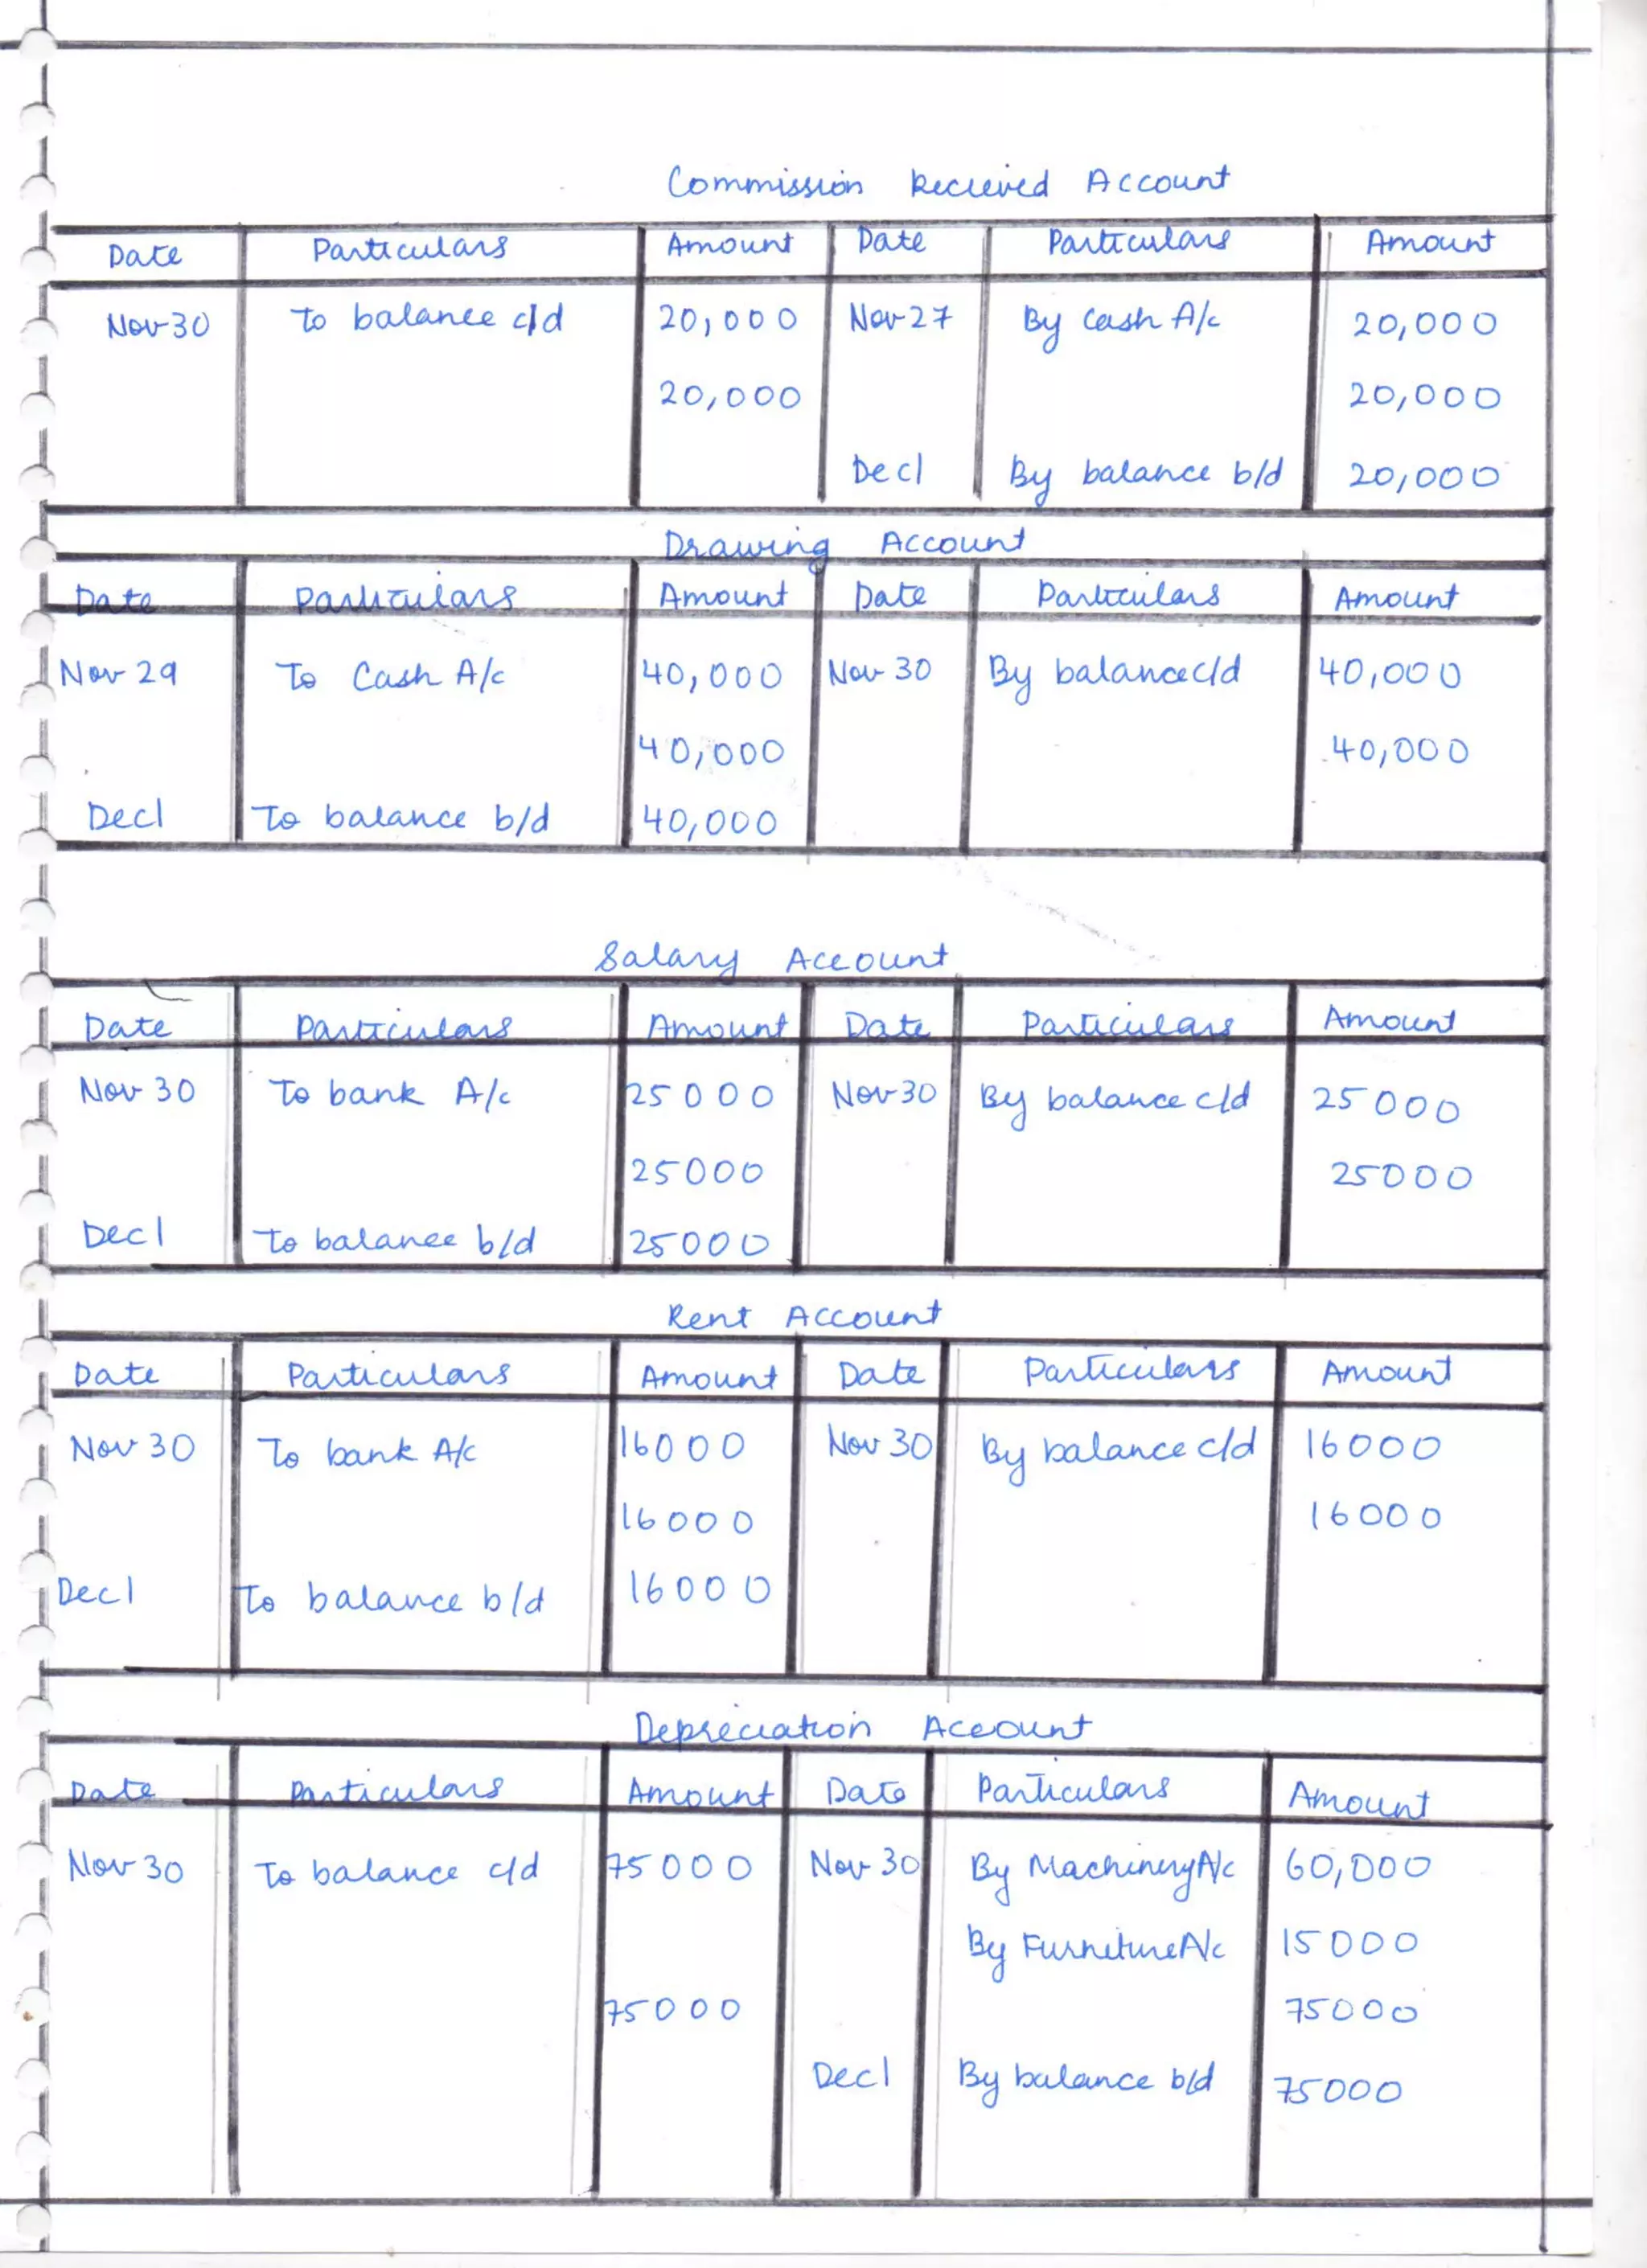 Commission Recieved Account
Date Particulars Amount Date Particulars Amount
Nov 30 To balance c/d 20,000 Nov 27 By Cash A/c 20,000
20,000 20,000
Dec 1 By balance b/d 20,000
Drawing Account
Date Particulars Amount Date Particulars Amount
Nov 29 To Cash A/c 40,000 Nov 30 By balance c/d 40,000
40,000 40,000
Dec 1 To balance b/d 40,000
Salary Account
Date Particulars Amount Date Particulars Amount
Nov 30 To bank A/c 25000 Nov 30 By balance c/d 25000
25000 25000
Dec 1 To balance b/d 25000
Rent Account
Date Particulars Amount Date Particulars Amount
Nov 30 To bank A/c 16000 Nov 30 By balance c/d 16000
16000 16000
Dec 1 To balance b/d 16000
Depreciation Account
Date Particulars Amount Date Particulars Amount
Nov 30 To balance c/d 75000 Nov 30 By Machinery A/c 60,000
By Furniture A/c 15000
75000 75000
Dec 1 By balance b/d 75000